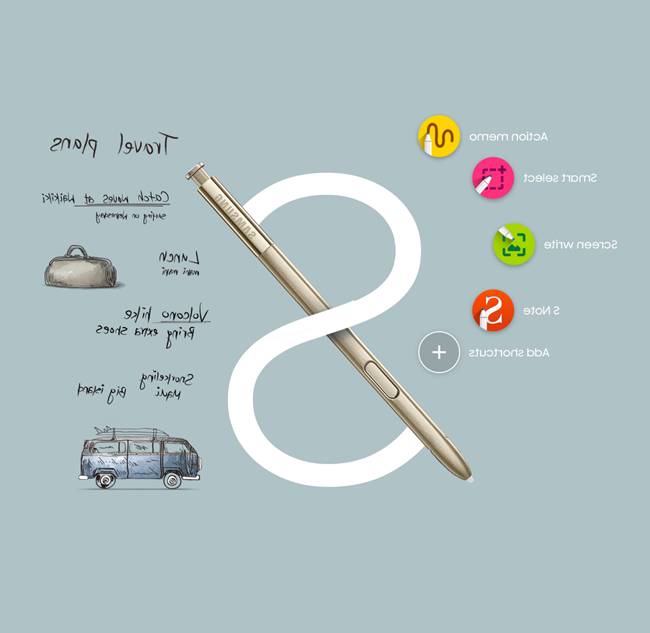 Travel plans
Catch waves at Waikiki
Lunch
Volcano hike
Bring extra shoes
Snorkeling
Maui Big island
SAMSUNG
Action memo
Smart select
Screen write
S
S Note
Add shortcuts